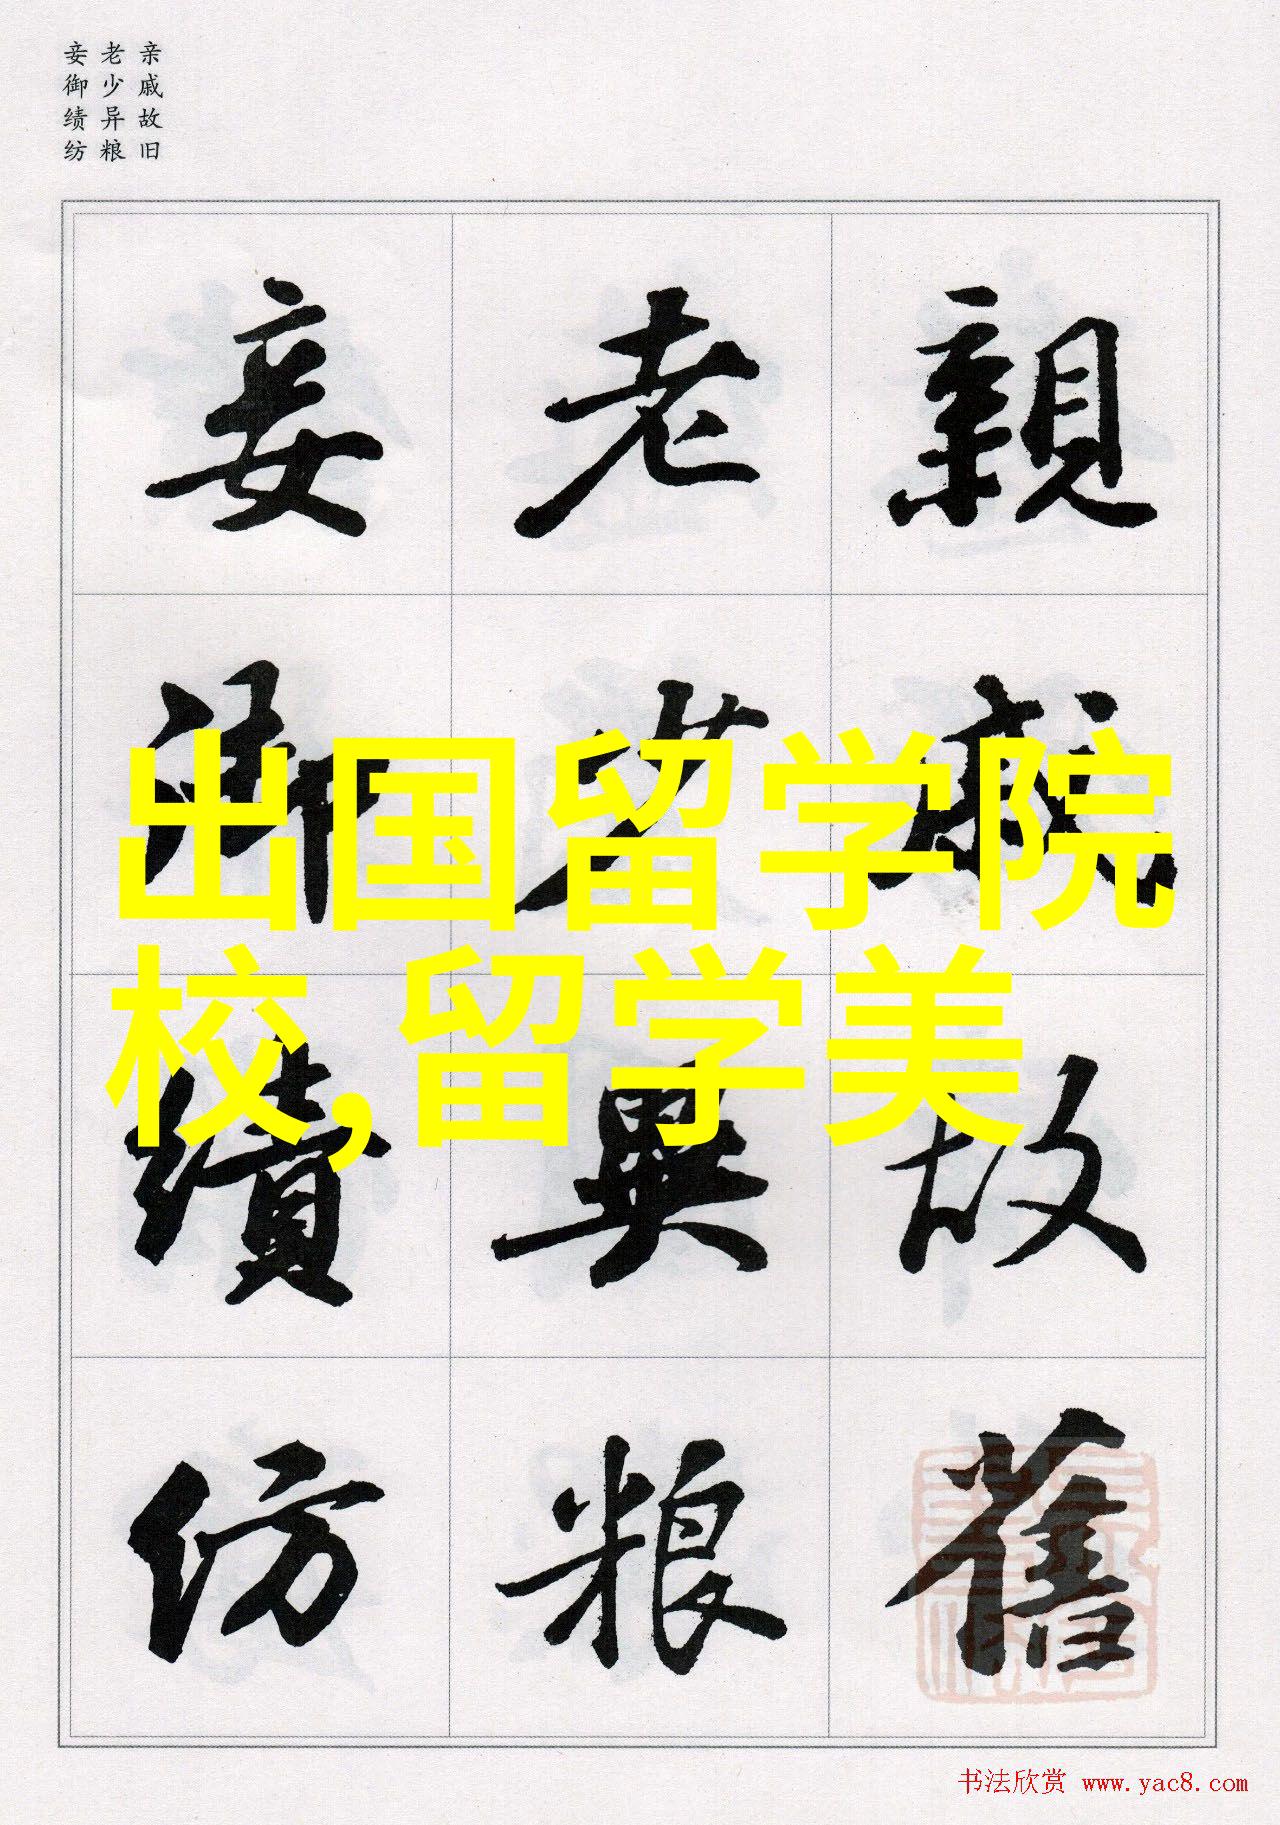 亲戚故旧
老少异粮
妾御绩纺
親戚故舊
老少異粮
妾御績紡
出国留学院
校,留学美
书法欣赏 www.yac8.com